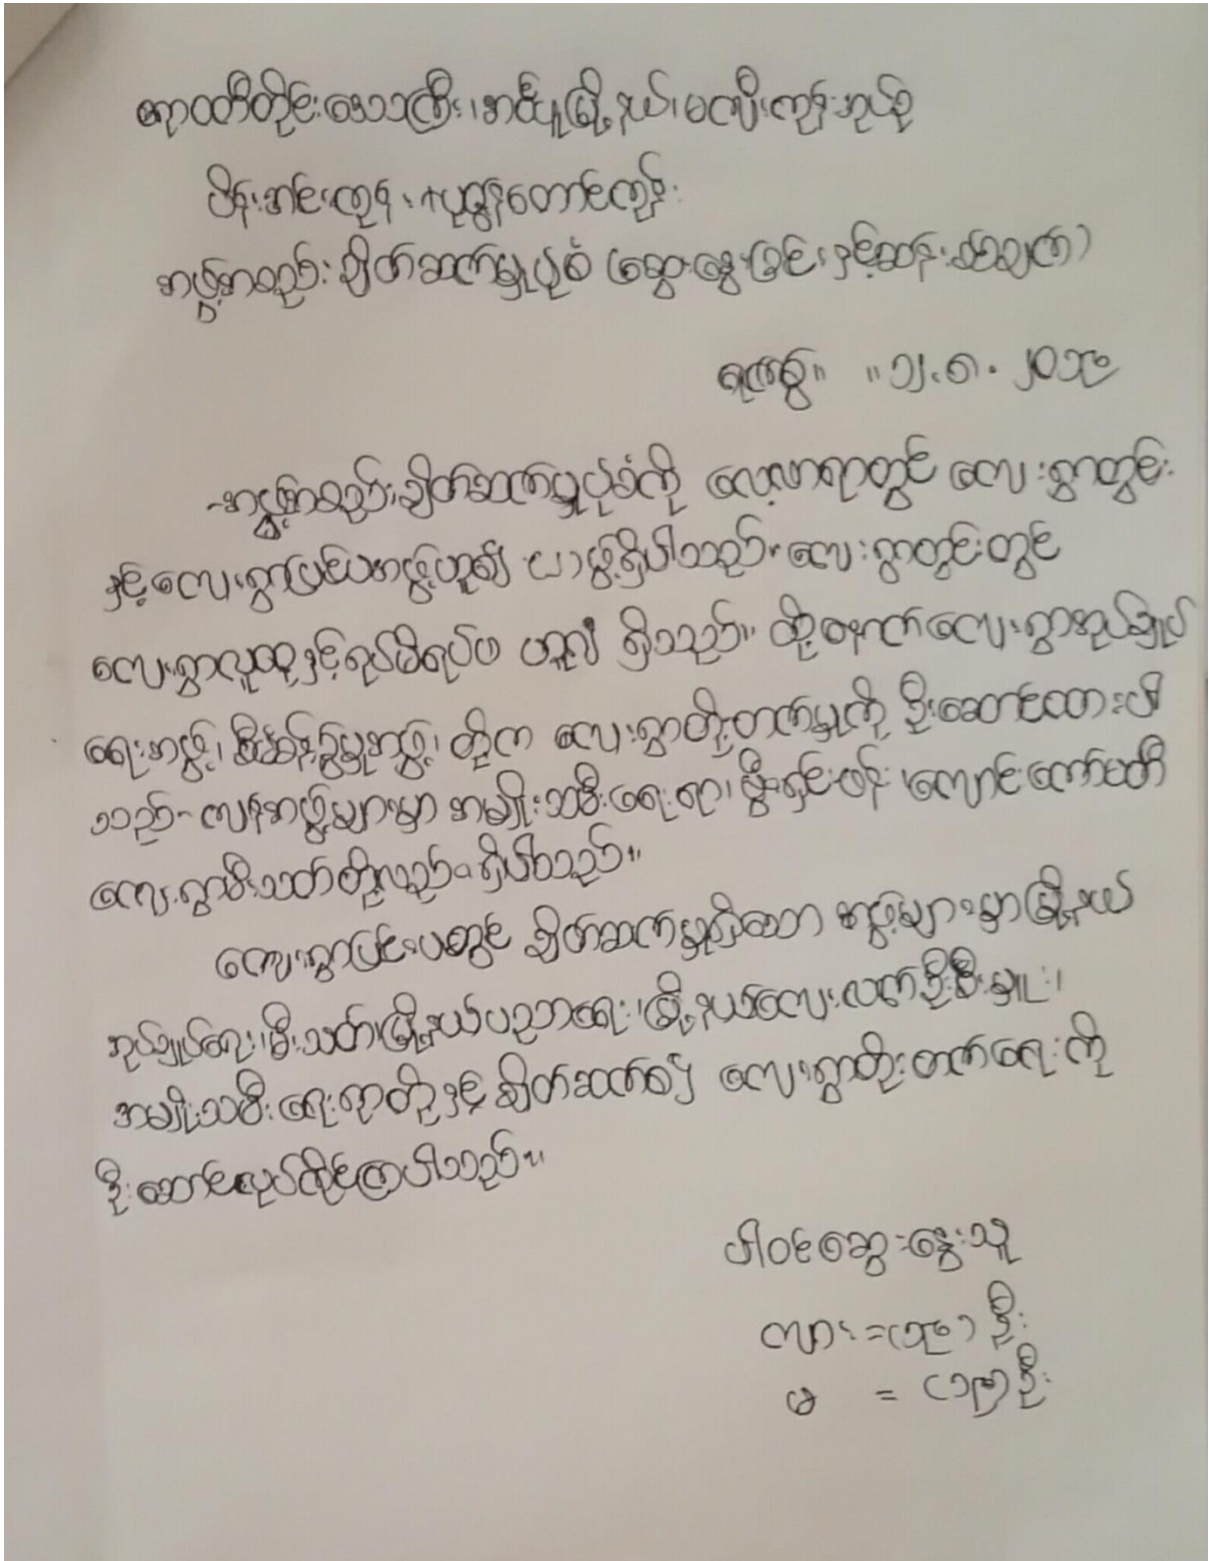 ဧရာဝတီတိုင်းဒေသကြီး၊ ဖျာပုံမြို့နယ်၊ မကျီးကုန်းအုပ်စု
ပိန်းအင်းကုန်း + ပုဇွန်တောင်ကုန်း
အဖွဲ့အစည်းချိတ်ဆက်မှုပုံစံ (ဆွေးနွေးခြင်းနှင့်ဆန်းစစ်ချက်)
ရက်စွဲ။ ။၁၂.၈.၂၀
-အဖွဲ့အစည်းချိတ်ဆက်မှုပုံစံကို လေ့လာရာတွင် ကျေးရွာတွင်း
နှင့်ကျေးရွာပြင်ပအဖွဲ့ဟူ၍ ၂ ဖွဲ့ရှိပါသည်။ ကျေးရွာတွင်းတွင်
ကျေးရွာလူထုနှင့်ရပ်မိရပ်ဖ ဟူ၍ ရှိသည်။ ထို့နောက်ကျေးရွာအုပ်ချုပ်
ရေးအဖွဲ့၊ စီမံခန့်ခွဲမှုအဖွဲ့၊ တို့က ကျေးရွာတိုးတက်မှုကို ဦးဆောင်ထားပါ
သည်- ကျန်အဖွဲ့များမှာ အမျိုးသမီးရေးရာ၊ မွီးရှင်းဖန်၊ ကျောင်းကော်မတီ
ကျေးရွာမီးသတ်တို့လည်းရှိပါသည်။
ကျေးရွာပြင်ပတွင် ချိတ်ဆက်မှုရှိသော အဖွဲ့များမှာမြို့နယ်
အုပ်ချုပ်ရေး၊ မီးသတ်၊မြို့နယ်ပညာရေး၊ မြို့နယ်ကျေးလက်ဦးစီးမှူး၊
အမျိုးသမီးရေးရာတို့နှင့် ချိတ်ဆက်၍ ကျေးရွာတိုးတက်ရေးကို
ဦးဆောင်လုပ်ကိုင်ကြပါသည်။
ပါဝင်ဆွေးနွေးသူ
ကျား = ဦး
မ = (၁၅)ဦး